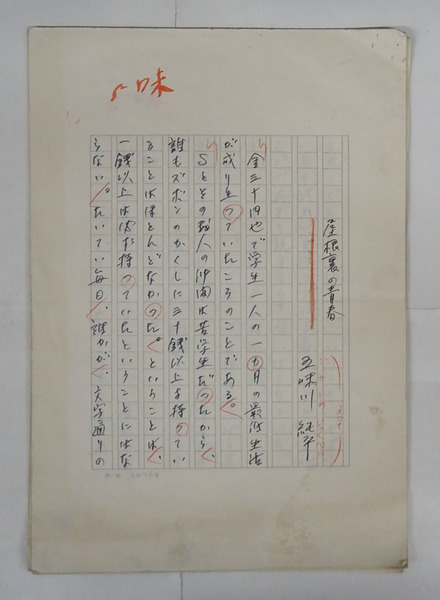 味
屋根裏の青春
五味川 純平
金三十円也で学生一人の一カ月の最低生活
が成り立っていたころのことである。
Sとその数人の仲間は苦学生だったから、
誰もズボンのかくしに三十銭以上を持ってい
ることはほとんどなかった。ということは、
一銭以上は必ず持っていたということにはな
らない。たいてい毎日、誰かが、文字通りの